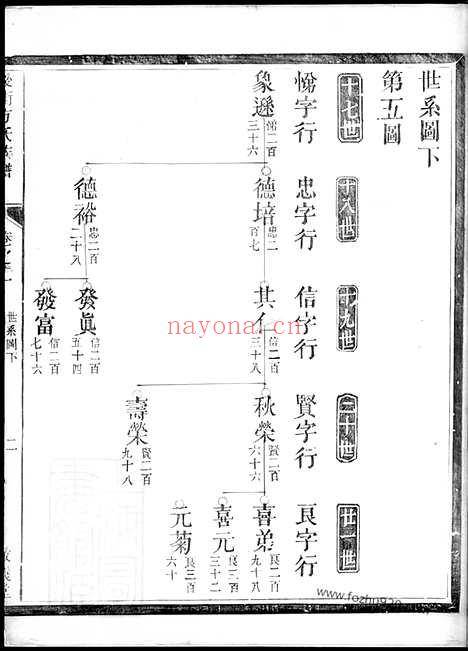 世系圖下
第五圖
十七世
悌字行
象遜 悌二百三十六
十八世
忠字行
德培 忠二百七
德裕 忠二百二十八
十九世
信字行
其仁 信二百三十八
發眞 信二百五十四
發富 信二百七十六
二十世
賢字行
秋榮 賢二百六十六
壽榮 賢二百九十八
廿一世
良字行
喜弟 良二百九十八
喜元 良三百三十二
元菊 良三百六十
氏族譜
世系圖下
二
nayona.cn